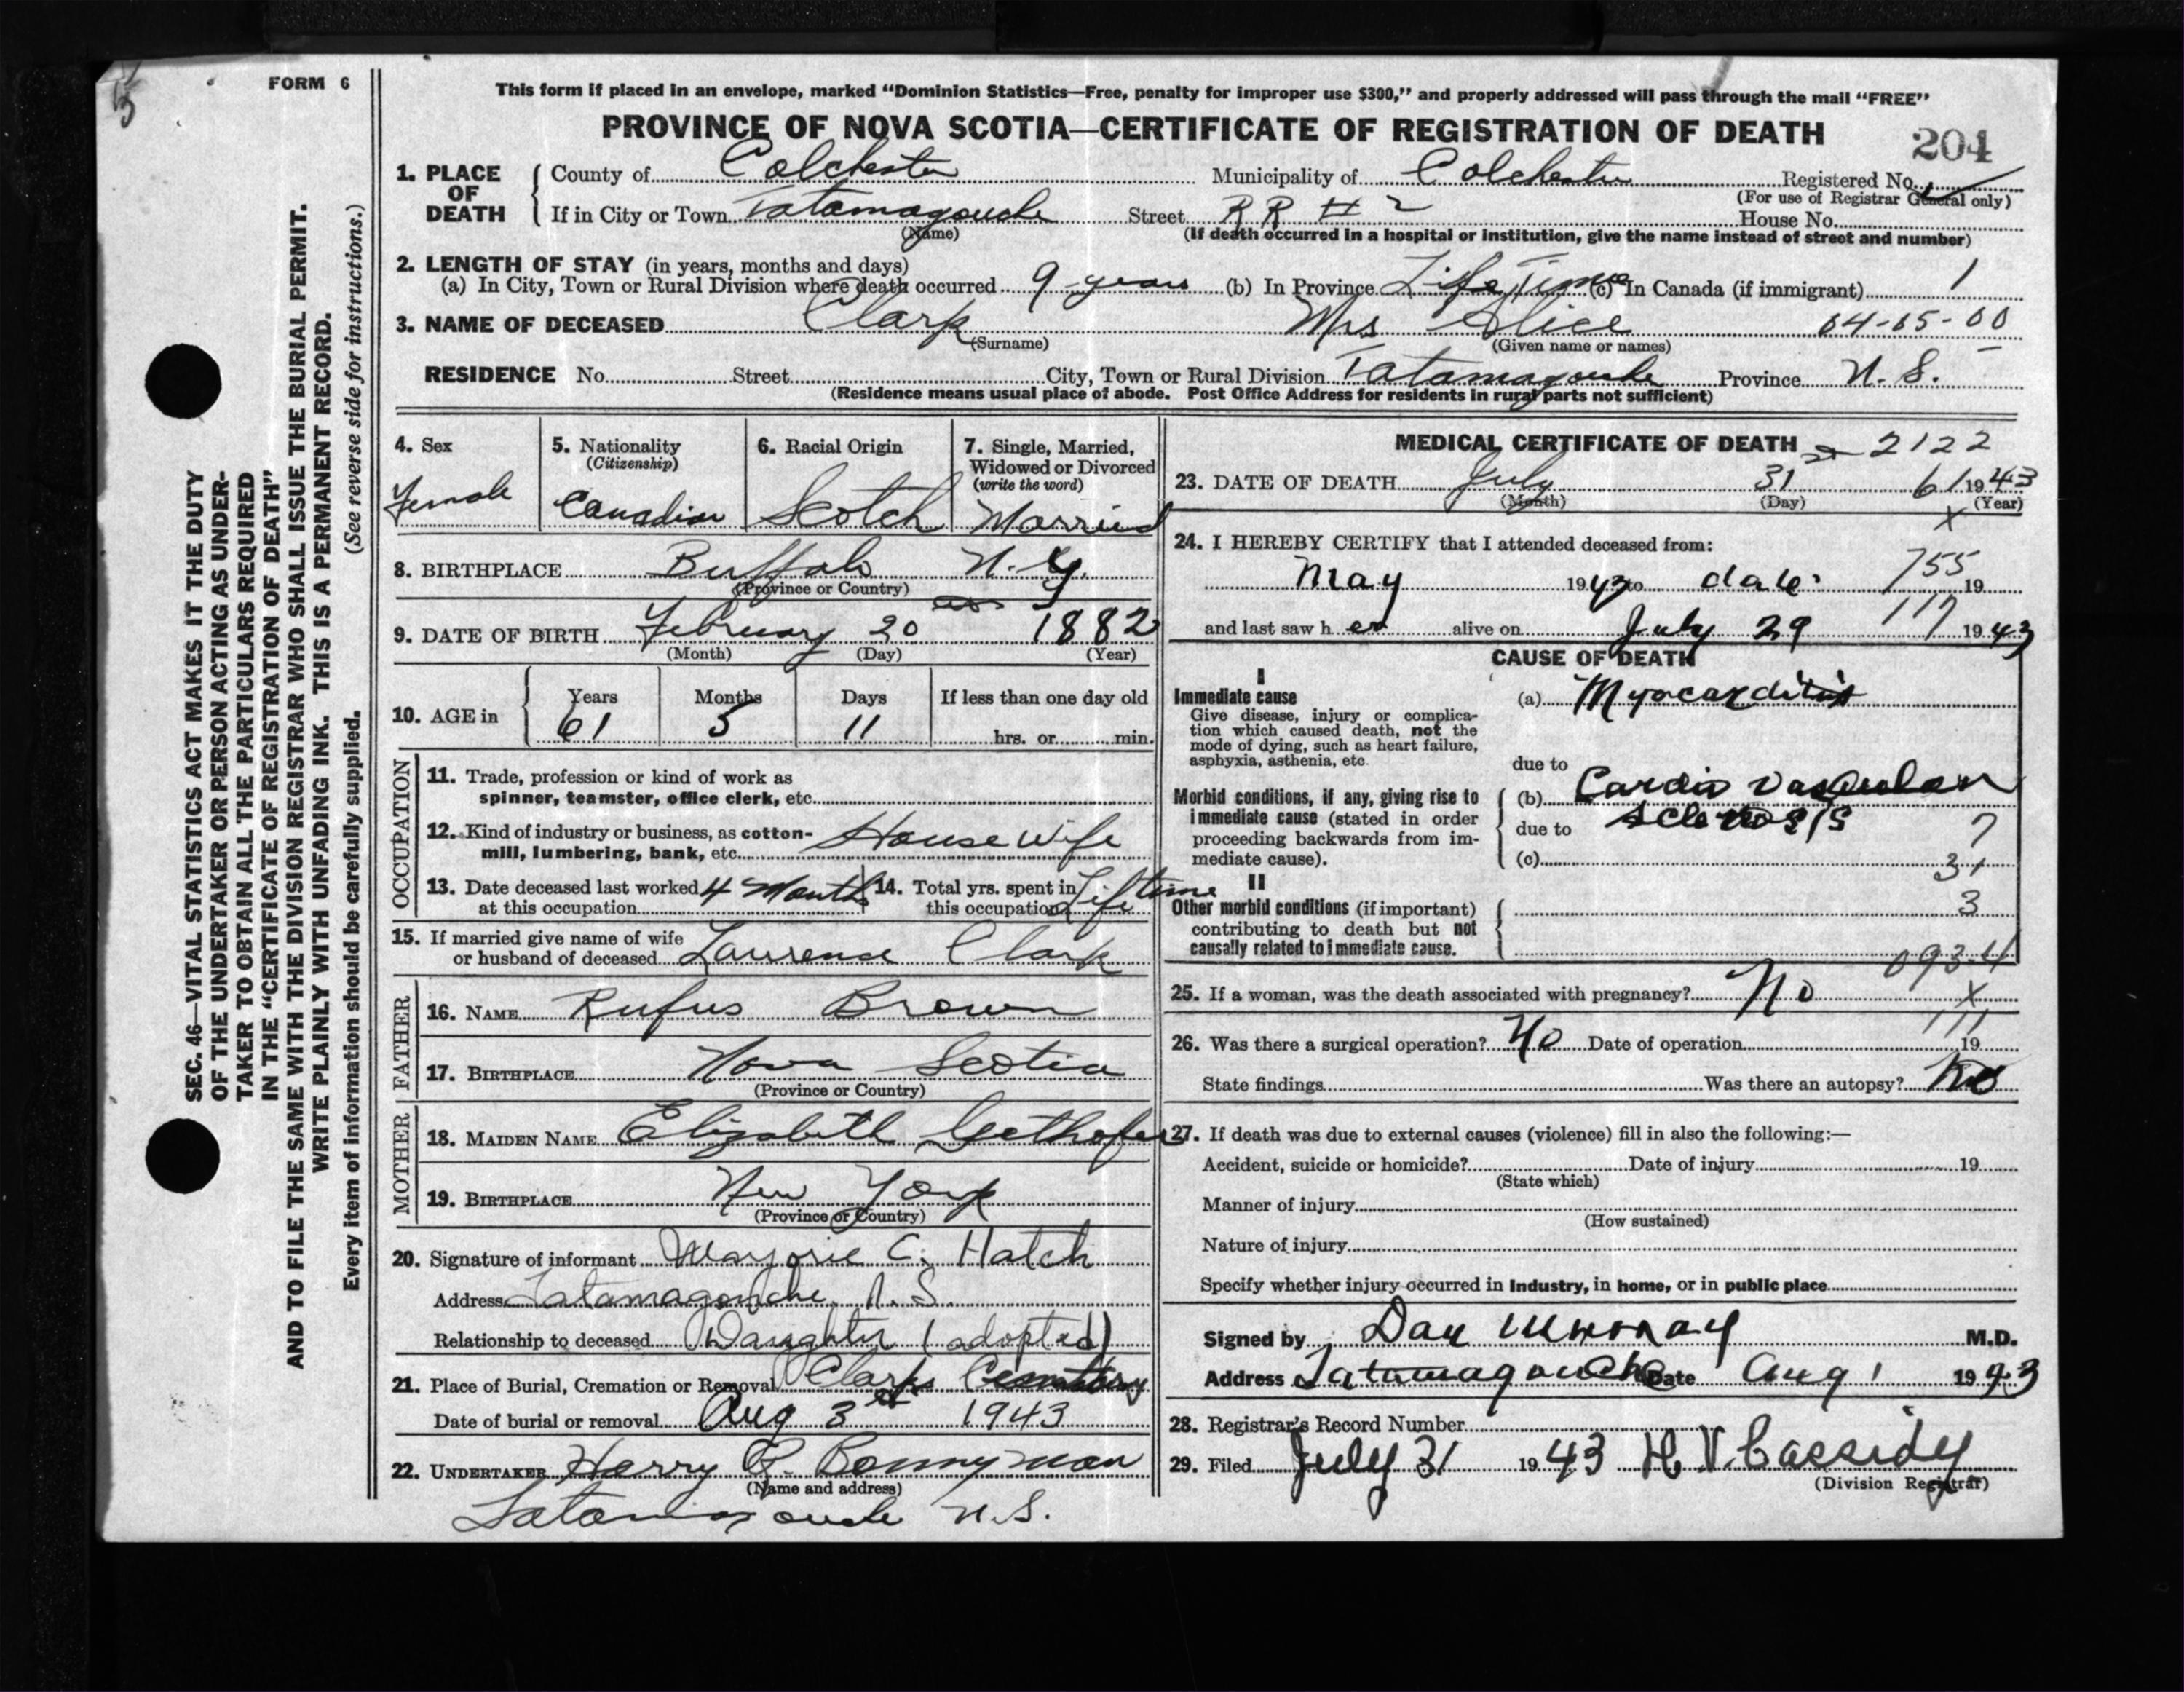 FORM 6
This form if placed in an envelope, marked "Dominion Statistics—Free, penalty for improper use $300," and properly addressed will pass through the mail "FREE"
PROVINCE OF NOVA SCOTIA—CERTIFICATE OF REGISTRATION OF DEATH
204
SEC. 46—VITAL STATISTICS ACT MAKES IT THE DUTY
OF THE UNDERTAKER OR PERSON ACTING AS UNDER-
TAKER TO OBTAIN ALL THE PARTICULARS REQUIRED
IN THE "CERTIFICATE OF REGISTRATION OF DEATH"
AND TO FILE THE SAME WITH THE DIVISION REGISTRAR WHO SHALL ISSUE THE BURIAL PERMIT.
WRITE PLAINLY WITH UNFADING INK. THIS IS A PERMANENT RECORD.
Every item of information should be carefully supplied. (See reverse side for instructions.)
1. PLACE OF DEATH
County of Colchester Municipality of Colchester Registered No.
(For use of Registrar General only)
If in City or Town Tatamagouche Street R R # 2 House No.
(Name) (If death occurred in a hospital or institution, give the name instead of street and number)
2. LENGTH OF STAY (in years, months and days)
(a) In City, Town or Rural Division where death occurred 9 years (b) In Province Life Time (c) In Canada (if immigrant) 1
3. NAME OF DECEASED Clark Mrs Alice 64-05-00
(Surname) (Given name or names)
RESIDENCE No. Street City, Town or Rural Division Tatamagouche Province N. S.
(Residence means usual place of abode. Post Office Address for residents in rural parts not sufficient)
4. Sex
Female
5. Nationality
(Citizenship)
Canadian
6. Racial Origin
Scotch
7. Single, Married,
Widowed or Divorced
(write the word)
Married
8. BIRTHPLACE Buffalo N. Y.
(Province or Country)
9. DATE OF BIRTH February 20 1882
(Month) (Day) (Year)
10. AGE in Years Months Days If less than one day old
61 5 11 hrs. or min.
OCCUPATION
11. Trade, profession or kind of work as
spinner, teamster, office clerk, etc.
12. Kind of industry or business, as cotton-
mill, lumbering, bank, etc. House Wife
13. Date deceased last worked 4 Months
at this occupation
14. Total yrs. spent in
this occupation Lifetime
15. If married give name of wife
or husband of deceased Laurence Clark
FATHER
16. NAME Rufus Brown
17. BIRTHPLACE Nova Scotia
(Province or Country)
MOTHER
18. MAIDEN NAME Elizabeth
19. BIRTHPLACE New York
(Province or Country)
20. Signature of informant Marjorie C. Hatch
Address Tatamagouche, N. S.
Relationship to deceased Daughter (adopted)
21. Place of Burial, Cremation or Removal Clarks Cemetery
Date of burial or removal Aug 3rd 1943
22. UNDERTAKER Harry R. Bonnyman
(Name and address)
Tatamagouche N.S.
MEDICAL CERTIFICATE OF DEATH 2122
23. DATE OF DEATH July 31 61 1943
(Month) (Day) (Year)
X
24. I HEREBY CERTIFY that I attended deceased from:
May 1943 to date. 755 19
and last saw h er alive on July 29 117 1943
CAUSE OF DEATH
I
Immediate cause
Give disease, injury or complica-
tion which caused death, not the
mode of dying, such as heart failure,
asphyxia, asthenia, etc.
(a) Myocarditis
due to
Morbid conditions, if any, giving rise to
immediate cause (stated in order
proceeding backwards from im-
mediate cause).
(b) Cardio Vascular
due to sclerosis
7
(c) 31
II
Other morbid conditions (if important)
contributing to death but not
causally related to immediate cause.
3
093-4
25. If a woman, was the death associated with pregnancy? No X
111
26. Was there a surgical operation? No Date of operation 19
State findings Was there an autopsy? No
27. If death was due to external causes (violence) fill in also the following:—
Accident, suicide or homicide? Date of injury 19
(State which)
Manner of injury
(How sustained)
Nature of injury
Specify whether injury occurred in Industry, in home, or in public place
Signed by Dan Murray M.D.
Address Tatamagouche Date Aug 1 1943
28. Registrar's Record Number
29. Filed July 31 1943 H. V. Cassidy
(Division Registrar)